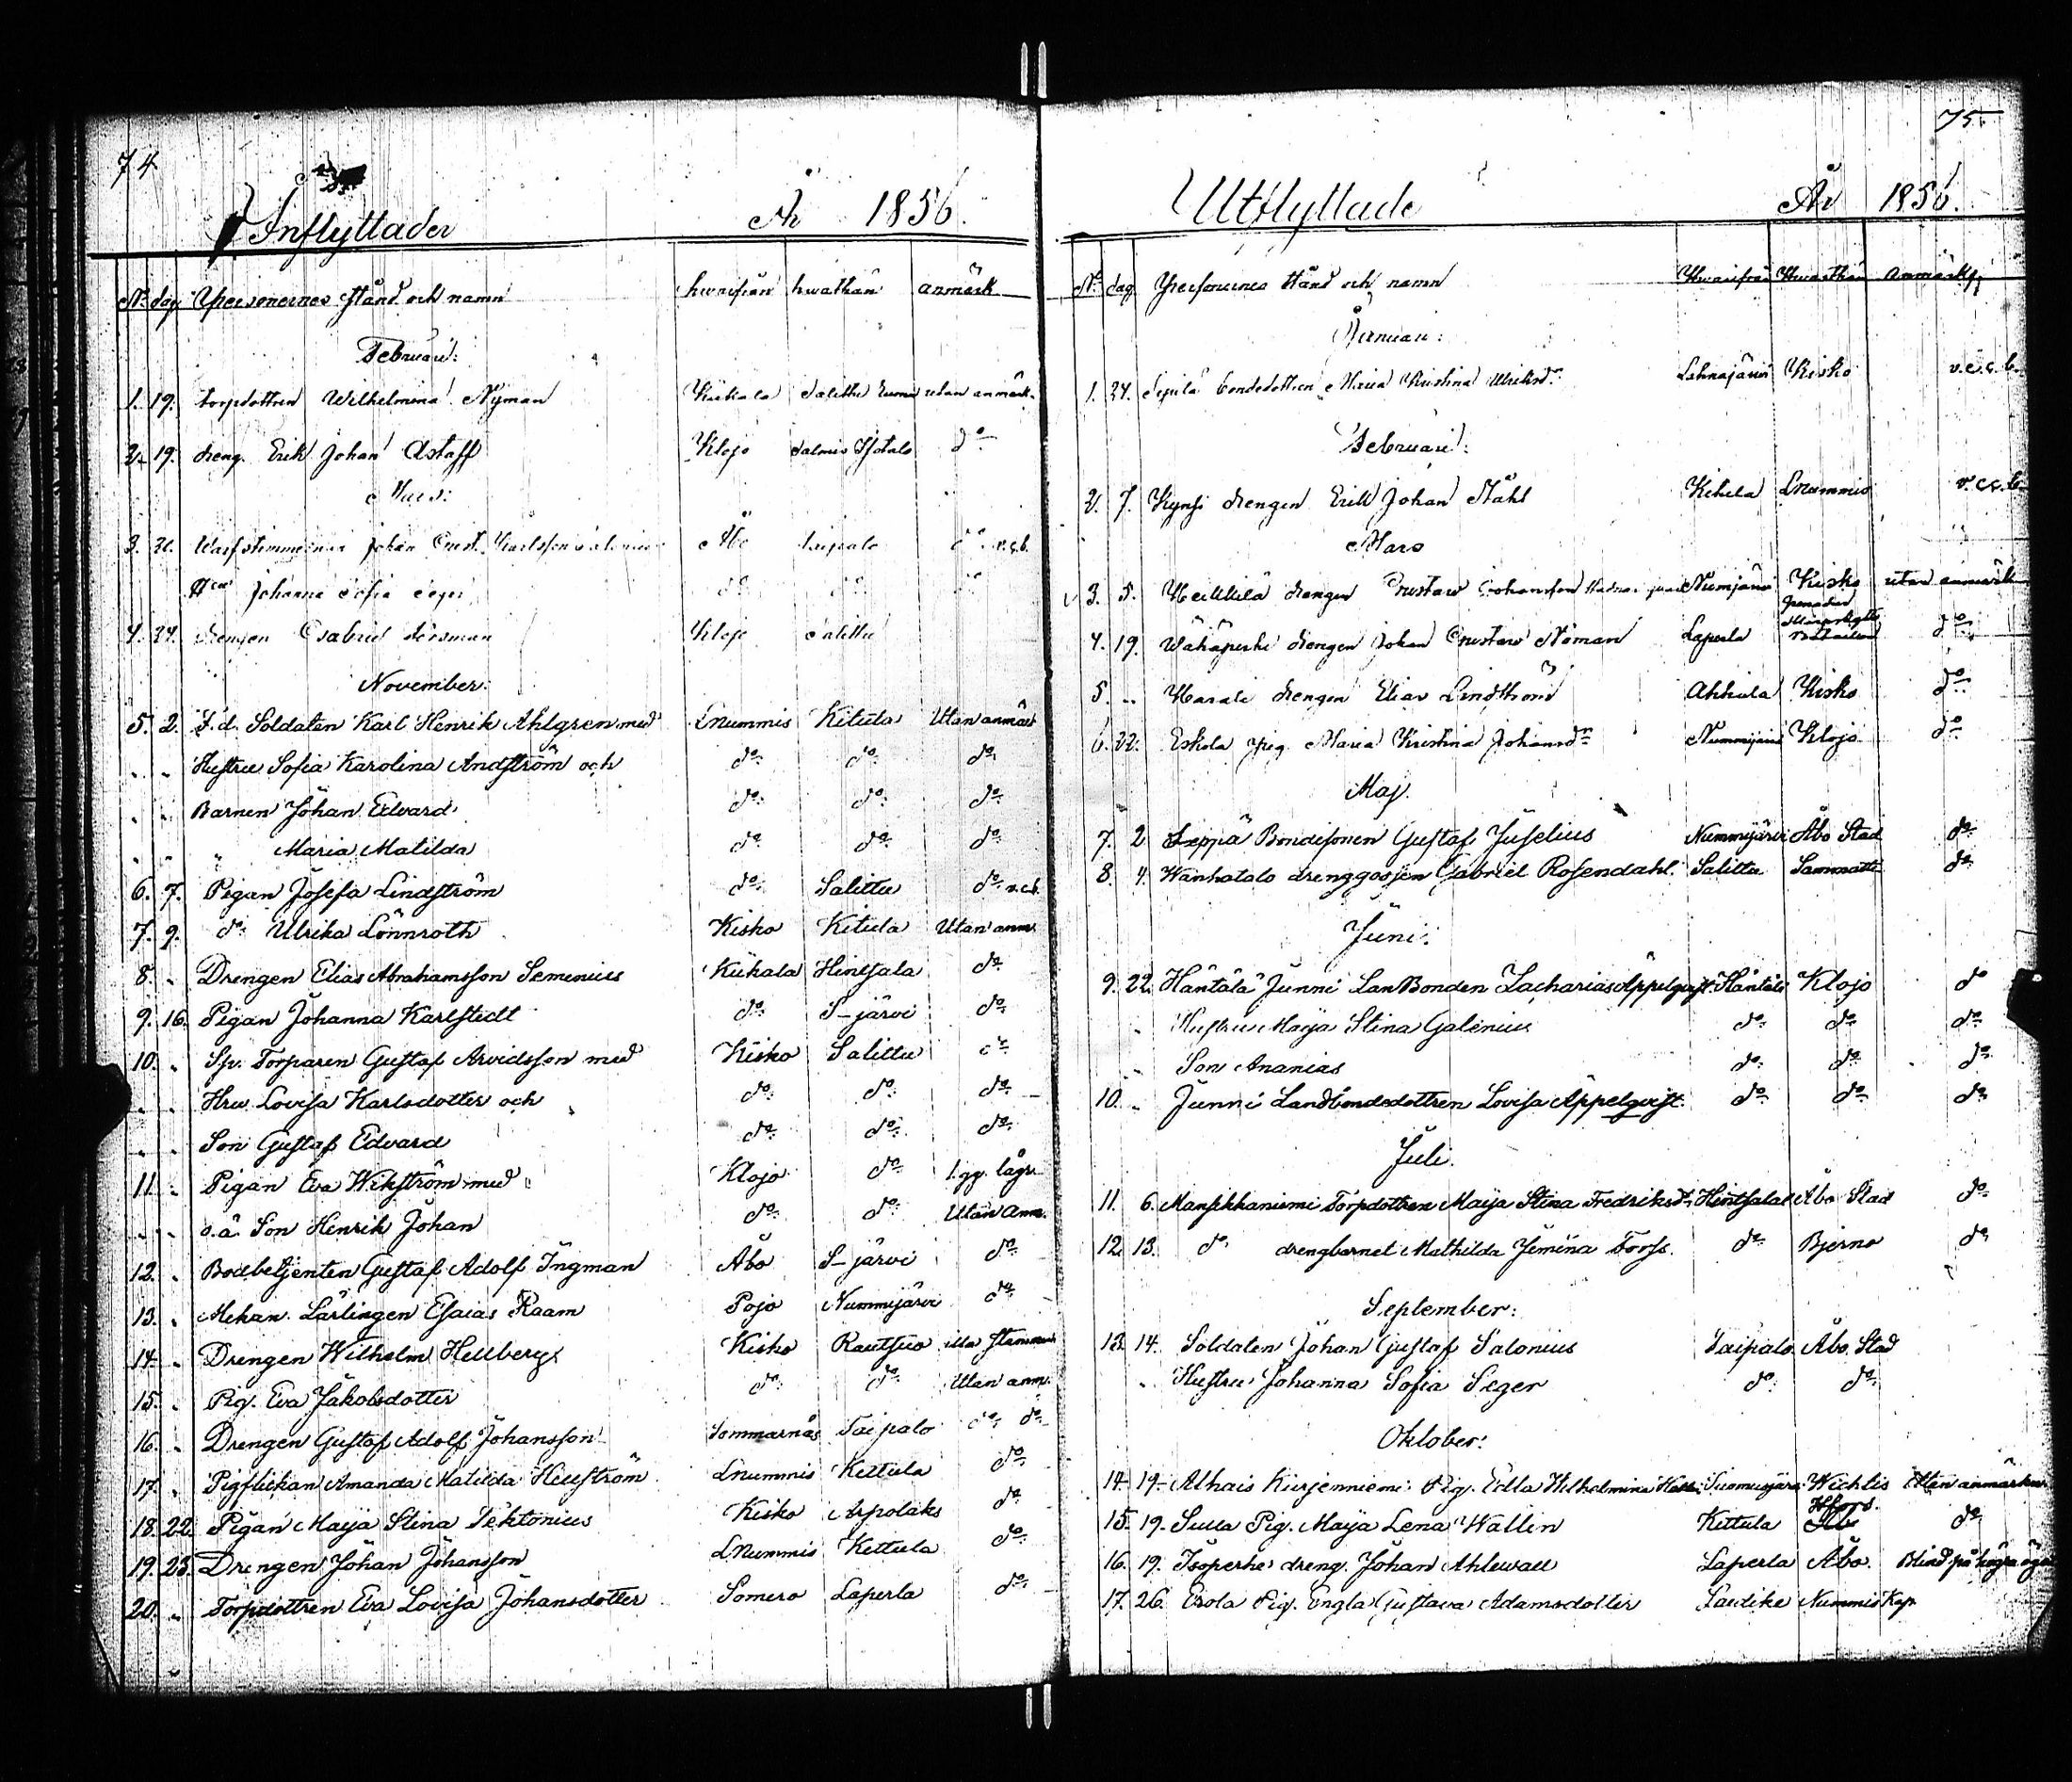 74
Inflyttader År 1856.
No. dag Personernas stånd och namn hwarifrån hwarthän anmärk
Februari:
1. 19. torpdottren Wilhelmina Nyman Kiikala Salittu utan anmärk.
2. 19. dreng. Erik Johan Astaff Klojo do
Mars:
3. Johan Gust. Karlsson Salonius Åbo taipalo do v.c.b.
Hru Johanna Sofia Seger do do do
4. 27. drengen Gabriel Klojo Salittu
November:
5. 2. F.d. Soldaten Karl Henrik Ahlgren med Lnummis Kitula Utan anmärk
" " Hustru Sofia Karolina Andström och do: do: do:
" " Barnen Johan Edvard do: do: do:
" " " Maria Matilda do: do: do:
6. 7. Pigan Josefa Lindström do: Salittu do: v.c.b.
7. 9. do: Ulrika Lönnroth Kisko Kitula Utan anm.
8. " Drengen Elias Abrahamsson Semenius Kiikala Hintsala do:
9. 16. Pigan Johanna Karlstedt do: S-järvi do:
10. " Sp. Torparen Gustaf Arvidsson med Kisko Salittu do:
" " Hru Lovisa Karlsdotter och do: do: do:
" " Son Gustaf Edvard do: do: do:
11. " Pigan Eva Wikström med Klojo do: 1. gg. lägr.
" " o.ä. Son Henrik Johan do: do: Utan Anm.
12. " Bodbetjenten Gustaf Adolf Ingman Åbo S-järvi do:
13. " Mekan. Lärlingen Esaias Raam Pojo Nummijärvi do:
14. " Drengen Wilhelm Hellberg Kisko Rautsuo illa
15. " Pig. Eva Jakobsdotter do: do: Utan anm.
16. " Drengen Gustaf Adolf Johansson Sommarnäs Taipalo do: do:
17. " Pigflickan Amanda Matilda Hellström Lnummis Kettula do:
18. 22. Pigan Maija Stina Tektonius Kisko Arpolaks do:
19. 23. Drengen Johan Johansson LNummis Kettula do:
20. " Torpdottren Eva Lovisa Johansdotter Somero Laperla do:
75
Utflyttade År 1856.
No. dag Personernes stånd och namn Hwarifrån Hwarthän anmärk
Januari:
1. 27. Sipilä bondedottren Maria Kristina Ulriksdr Lahnajärvi Kisko v.c.b.
Februari:
2. 7. Kynsi drengen Erik Johan Ståhl Kitula Lnummis v.c.b.
Mars
3. 5. Heikkilä drengen Gustaw Johansson Numjärvi Kisko utan anmärk
4. 19. Wähäperhe drengen Johan Gustaw Nöman Laperla Bataillon do:
5. " Harala drengen Elias Lindström Ahkula Kisko do:
6. 22. Eskola pig. Maria Kristina Johansdr Nummijärvi Klojo do
Maj.
7. 2. Leppä Bondesonen Gustaf Juselius Nummijärvi Åbo Stad do:
8. 4. Wanhatalo drenggossen Gabriel Rosendahl. Salittu Sammatti do:
Juni:
9. 22. Häntälä Junni LanBonden Zacharias Appelqvist. Häntälä Klojo do
" Hustru Maija Stina Galenius do: do: do:
" Son Ananias do: do: do:
10. " Junni Landbondedottren Lovisa Appelqvist. do: do: do:
Juli.
11. 6. Mansikkaniemi Torpdottren Maija Stina Fredriksdr Hintsala Åbo Stad do:
12. 13. do: drengbarnet Mathilda Jemina Forss. do: Bjerno do:
September:
13. 14. Soldaten Johan Gustaf Salonius Taipalo Åbo Stad
" Hustru Johanna Sofia Seger do: do:
Oktober:
14. 19. Alhais Kurjenniemi Pig. Edla Wilhelmina Suomusjärvi Wichtis Utan anmärkn
15. 19. Sulla Pig. Maija Lena Wallin Kettula Hfors. do:
16. 19. Isoperhe dreng. Johan Ahlewall Laperla Åbo. Blind på högra ögat
17. 26. Erola Pig. Engla Gustava Adamsdotter Laidike Nummis Kap